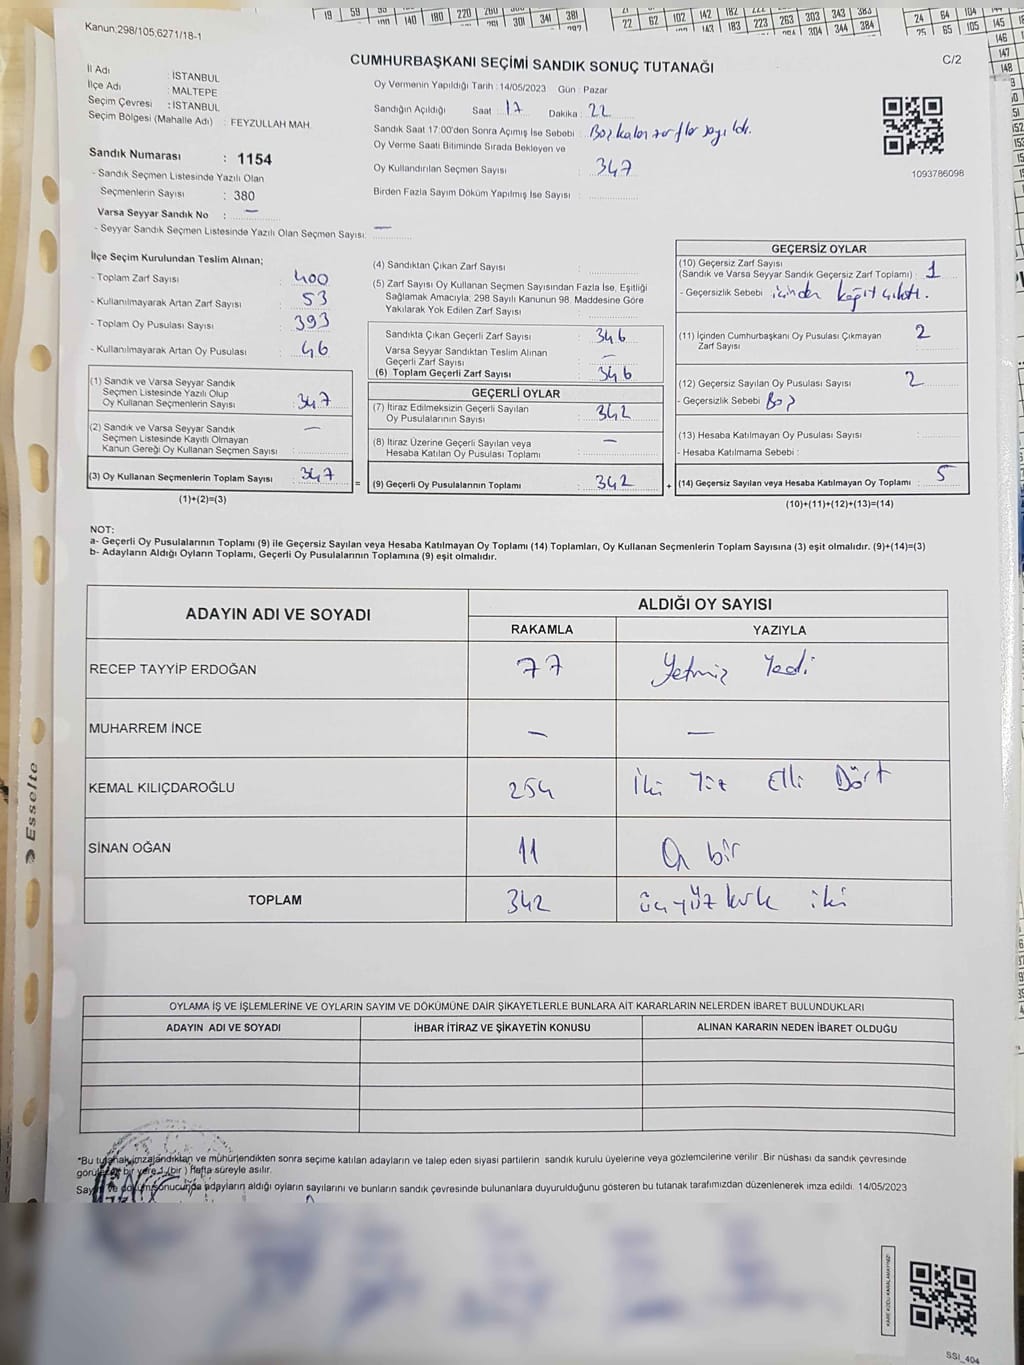 Kanun,298/105,6271/18-1
CUMHURBAŞKANI SEÇİMİ SANDIK SONUÇ TUTANAĞI
C/2
İl Adı : İSTANBUL
İlçe Adı : MALTEPE
Seçim Çevresi : İSTANBUL
Seçim Bölgesi (Mahalle Adı) : FEYZULLAH MAH.
Oy Vermenin Yapıldığı Tarih : 14/05/2023 Gün : Pazar
Sandığın Açıldığı Saat : 17 Dakika : 22
Sandık Saat 17:00'den Sonra Açımış İse Sebebi : Boş kalan zarflar sayıldı.
Oy Verme Saati Bitiminde Sırada Bekleyen ve
Oy Kullandırılan Seçmen Sayısı : 347
Birden Fazla Sayım Döküm Yapılmış İse Sayısı :
1093786098
Sandık Numarası : 1154
- Sandık Seçmen Listesinde Yazılı Olan
Seçmenlerin Sayısı : 380
Varsa Seyyar Sandık No : —
- Seyyar Sandık Seçmen Listesinde Yazılı Olan Seçmen Sayısı: —
İlçe Seçim Kurulundan Teslim Alınan;
- Toplam Zarf Sayısı : 400
- Kullanılmayarak Artan Zarf Sayısı : 53
- Toplam Oy Pusulası Sayısı : 393
- Kullanılmayarak Artan Oy Pusulası : 46
(1) Sandık ve Varsa Seyyar Sandık
Seçmen Listesinde Yazılı Olup
Oy Kullanan Seçmenlerin Sayısı : 347
(2) Sandık ve Varsa Seyyar Sandık
Seçmen Listesinde Kayıtlı Olmayan
Kanun Gereği Oy Kullanan Seçmen Sayısı : —
(3) Oy Kullanan Seçmenlerin Toplam Sayısı : 347
(1)+(2)=(3)
=
(4) Sandıktan Çıkan Zarf Sayısı :
(5) Zarf Sayısı Oy Kullanan Seçmen Sayısından Fazla İse, Eşitliği
Sağlamak Amacıyla; 298 Sayılı Kanunun 98. Maddesine Göre
Yakılarak Yok Edilen Zarf Sayısı :
Sandıkta Çıkan Geçerli Zarf Sayısı : 346
Varsa Seyyar Sandıktan Teslim Alınan
Geçerli Zarf Sayısı : —
(6) Toplam Geçerli Zarf Sayısı : 346
GEÇERLİ OYLAR
(7) İtiraz Edilmeksizin Geçerli Sayılan
Oy Pusulalarının Sayısı : 342
(8) İtiraz Üzerine Geçerli Sayılan veya
Hesaba Katılan Oy Pusulası Toplamı : —
(9) Geçerli Oy Pusulalarının Toplamı : 342
+
GEÇERSİZ OYLAR
(10) Geçersiz Zarf Sayısı
(Sandık ve Varsa Seyyar Sandık Geçersiz Zarf Toplamı) : 1
- Geçersizlik Sebebi : içinden kağıt çıktı.
(11) İçinden Cumhurbaşkanı Oy Pusulası Çıkmayan
Zarf Sayısı : 2
(12) Geçersiz Sayılan Oy Pusulası Sayısı : 2
- Geçersizlik Sebebi : Boş
(13) Hesaba Katılmayan Oy Pusulası Sayısı :
- Hesaba Katılmama Sebebi :
(14) Geçersiz Sayılan veya Hesaba Katılmayan Oy Toplamı : 5
(10)+(11)+(12)+(13)=(14)
NOT:
a- Geçerli Oy Pusulalarının Toplamı (9) ile Geçersiz Sayılan veya Hesaba Katılmayan Oy Toplamı (14) Toplamları, Oy Kullanan Seçmenlerin Toplam Sayısına (3) eşit olmalıdır. (9)+(14)=(3)
b- Adayların Aldığı Oyların Toplamı, Geçerli Oy Pusulalarının Toplamına (9) eşit olmalıdır.
ADAYIN ADI VE SOYADI
ALDIĞI OY SAYISI
RAKAMLA YAZIYLA
RECEP TAYYİP ERDOĞAN 77 Yetmiş Yedi
MUHARREM İNCE — —
KEMAL KILIÇDAROĞLU 254 İki Yüz Elli Dört
SİNAN OĞAN 11 On bir
TOPLAM 342 üçyüz kırk iki
OYLAMA İŞ VE İŞLEMLERİNE VE OYLARIN SAYIM VE DÖKÜMÜNE DAİR ŞİKAYETLERLE BUNLARA AİT KARARLARIN NELERDEN İBARET BULUNDUKLARI
ADAYIN ADI VE SOYADI İHBAR İTİRAZ VE ŞİKAYETİN KONUSU ALINAN KARARIN NEDEN İBARET OLDUĞU
*Bu tutanak imzalandıktan ve mühürlendikten sonra seçime katılan adayların ve talep eden siyasi partilerin sandık kurulu üyelerine veya gözlemcilerine verilir. Bir nüshası da sandık çevresinde
bir yere 1 (bir) hafta süreyle asılır.
Sayım ve döküm sonucunda adayların aldığı oyların sayılarını ve bunların sandık çevresinde bulunanlara duyurulduğunu gösteren bu tutanak tarafımızdan düzenlenerek imza edildi. 14/05/2023
KARE KODU KARALAMAYINIZ!
SSI_404
Esselte